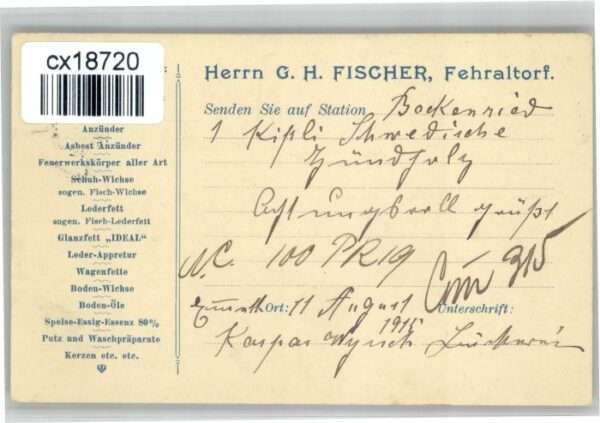 cx18720
Anzünder
Asbest Anzünder
Feuerwerkskörper aller Art
Schuh-Wichse
sogen. Fisch-Wichse
Lederfett
sogen. Fisch-Lederfett
Glanzfett „IDEAL“
Leder-Appretur
Wagenfette
Boden-Wichse
Boden-Öle
Speise-Essig-Essenz 80%
Putz und Waschpräparate
Kerzen etc. etc.
Herrn G. H. FISCHER, Fehraltorf.
Senden Sie auf Station Bockenried
1 Kistli Schwedische
Zündholz
Achtungsvoll grüßt
N.C. 100 PK 19
315
Ort: 11 August 1915 Unterschrift:
Kaspar